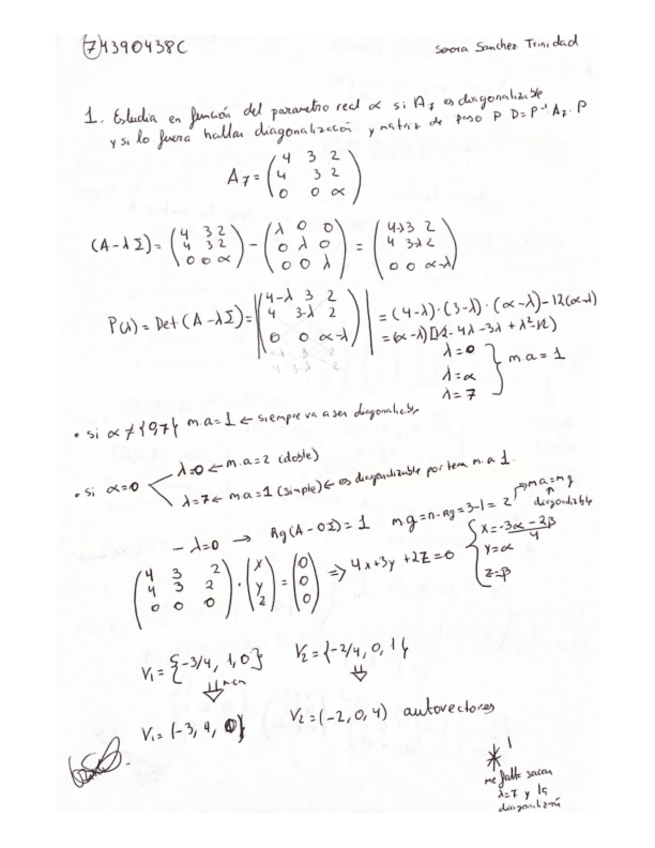 74390438C
Serora Sanchez Trinidad
1. Estudia en función del parametro real α si A7 es diagonalizable
y si lo fuera hallar diagonalización y matriz de paso P D=P⁻¹ A7·P
A7 = (4 3 2
4 3 2
0 0 α)
(A-λI) = (4 3 2 / 4 3 2 / 0 0 α) - (λ 0 0 / 0 λ 0 / 0 0 λ) = (4-λ 3 2 / 4 3-λ 2 / 0 0 α-λ)
P(λ) = Det (A-λI) = |(4-λ 3 2 / 4 3-λ 2 / 0 0 α-λ)| = (4-λ)·(3-λ)·(α-λ)-12(α-λ)
= (α-λ)[12-4λ-3λ+λ²-12)
λ=0
λ=α } m a = 1
λ=7
• si α≠{0,7} m.a=1 ← siempre va a ser diagonalizable
• si α=0
λ=0 ← m.a=2 (doble)
λ=7 ← m a=1 (simple) ← es diagonalizable por tener m.a 1.
- λ=0 → Rg(A-0I)=1 mg=n-Rg=3-1=2 → ma=mg
diagonalizable
(4 3 2 / 4 3 2 / 0 0 0)·(x / y / z) = (0 / 0 / 0) ⇒ 4x+3y+2z=0
{x=-3α-2β/4
y=α
z=β
V1={-3/4, 1,0} V2={-2/4, 0, 1}
mcm
V1=(-3, 4, 0} V2=(-2,0,4) autovectores
*1
me falta sacar
λ=7 y la
diagonalización